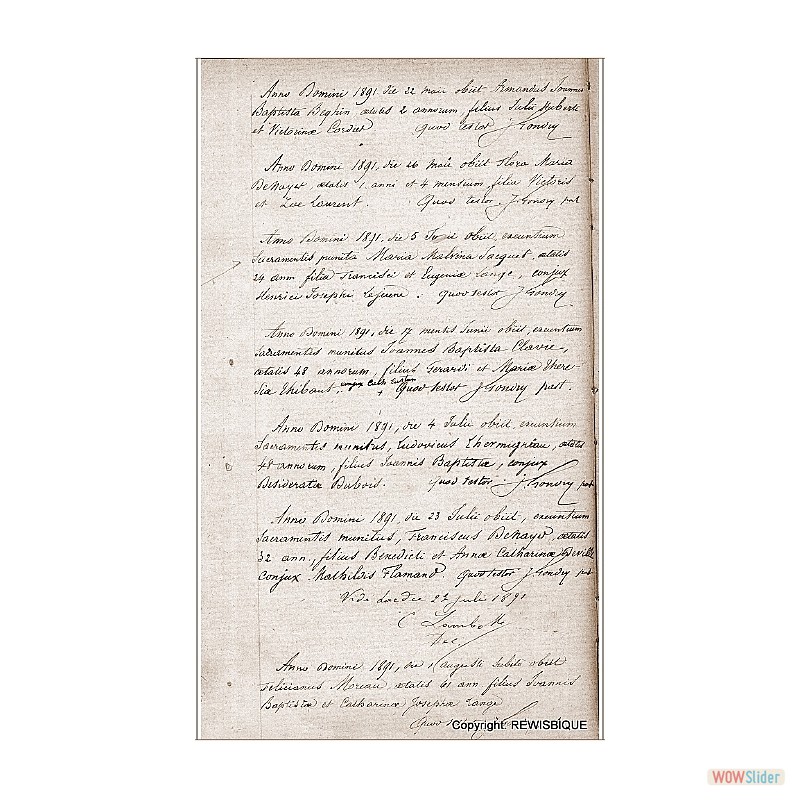 Anno Domini 1891 die 22 maii obiit Armandus Joannes
Baptista Beghin aetatis 2 annorum, filius Julii Huberti
et Victorinae Cordier Quod testor J Gondry
Anno Domini 1891, die 26 maii obiit Flora Maria
Dehaye aetatis 1 anni et 4 mensium, filia Victoris
et Zoe Laurent. Quod testor J. Gondry past
Anno Domini 1891, die 5 Junii obiit, exeuntium
Sacramentis munita Maria Malvina Jacquet, aetatis
24 ann filia Francisci et Eugeniae Lange, conjux
Henrici Josephi Lejuene. Quod testor J Gondry
Anno Domini 1891, die 17 mensis Junii obiit, exeuntium
Sacramentis munitus Joannes Baptista Clavie,
aetatis 48 annorum, filius Gerardi et Mariae There-
siae Thibaut, conjux Cath + Quod testor J Gondry past.
Anno Domini 1891, die 4 Julii obiit, exeuntium
Sacramentis munitus, Ludovicus Lhermigneau, aetatis
48 annorum, filius Joannis Baptistae, conjux
Desideratae Dubois. Quod testor J. Gondry past
Anno Domini 1891, die 23 Julii obiit, exeuntium
Sacramentis munitus, Franciscus Dehaye, aetatis
32 ann, filius Benedicti et Annae Catharinae Deville
Conjux Mathildis Flamand. Quod testor J. Gondry past
Vidi 27 Julii 1891
C Lambotte
Dec
Anno Domini 1891, die 1 augusti subito obiit
Felicianus Moreau aetatis 61 ann filius Joannis
Baptistae et Catharinae Josephae Lange
Quod
Copyright: REWISBIQUE
WOWSlider